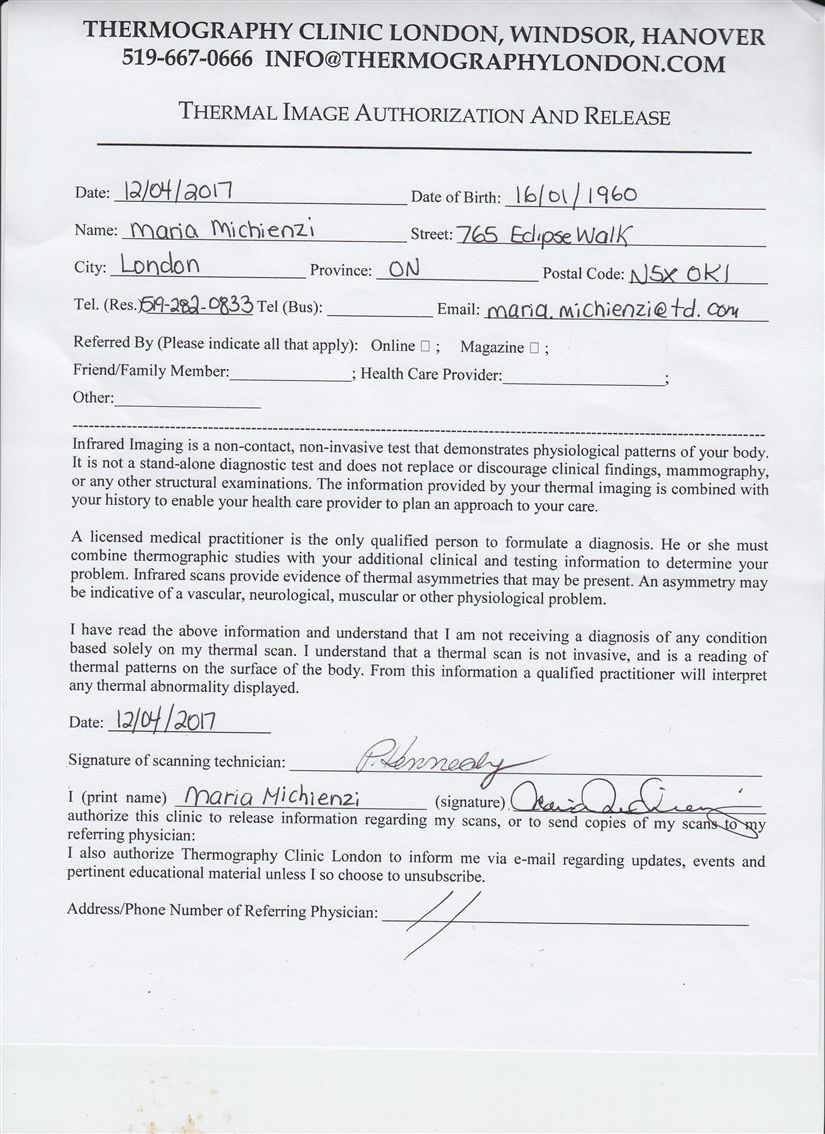 THERMOGRAPHY CLINIC LONDON, WINDSOR, HANOVER
519-667-0666 INFO@THERMOGRAPHYLONDON.COM
THERMAL IMAGE AUTHORIZATION AND RELEASE
Date: 12/04/2017 Date of Birth: 16/01/1960
Name: Maria Michienzi Street: 765 Eclipse Walk
City: London Province: ON Postal Code: N5X 0K1
Tel. (Res.) 519-282-0833 Tel (Bus): Email: maria.michienzi@td.com
Referred By (Please indicate all that apply): Online ☐ ; Magazine ☐ ;
Friend/Family Member:______________; Health Care Provider:____________________;
Other:__________________
Infrared Imaging is a non-contact, non-invasive test that demonstrates physiological patterns of your body.
It is not a stand-alone diagnostic test and does not replace or discourage clinical findings, mammography,
or any other structural examinations. The information provided by your thermal imaging is combined with
your history to enable your health care provider to plan an approach to your care.
A licensed medical practitioner is the only qualified person to formulate a diagnosis. He or she must
combine thermographic studies with your additional clinical and testing information to determine your
problem. Infrared scans provide evidence of thermal asymmetries that may be present. An asymmetry may
be indicative of a vascular, neurological, muscular or other physiological problem.
I have read the above information and understand that I am not receiving a diagnosis of any condition
based solely on my thermal scan. I understand that a thermal scan is not invasive, and is a reading of
thermal patterns on the surface of the body. From this information a qualified practitioner will interpret
any thermal abnormality displayed.
Date: 12/04/2017
Signature of scanning technician: P. Kennedy
I (print name) Maria Michienzi (signature)
authorize this clinic to release information regarding my scans, or to send copies of my scans to my
referring physician:
I also authorize Thermography Clinic London to inform me via e-mail regarding updates, events and
pertinent educational material unless I so choose to unsubscribe.
Address/Phone Number of Referring Physician: //